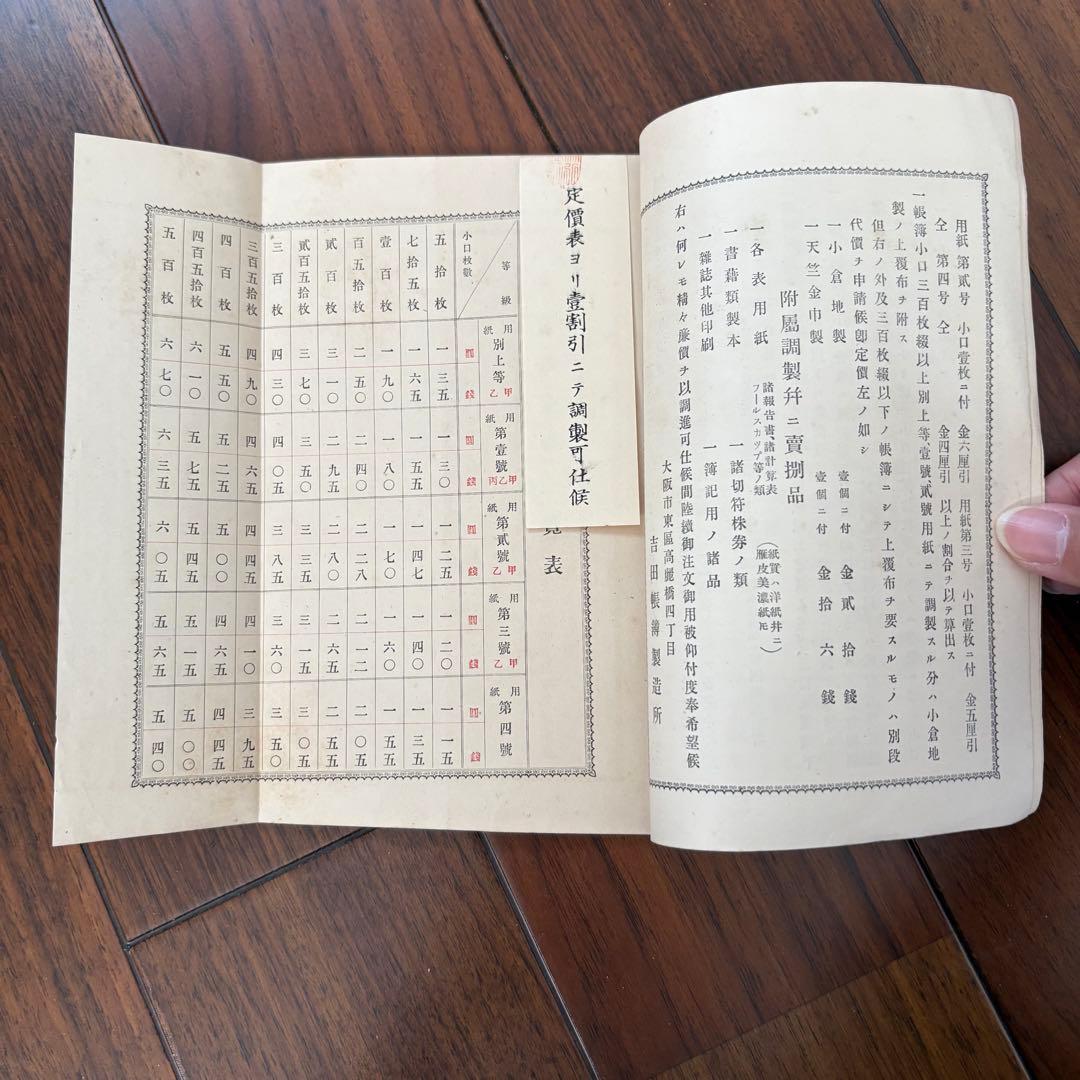 用紙第貳号 小口壹枚ニ付 金六厘引 用紙第三号 小口壹枚ニ付 金五厘引
仝 第四号 仝 金四厘引 以上ノ割合ヲ以テ算出ス
一帳簿小口三百枚綴以上別上等、壹號、貳號用紙ニテ調製スル分ハ小倉地
製ノ上覆布ヲ附ス
但右ノ外及三百枚綴以下ノ帳簿ニシテ上覆布ヲ要スルモノハ別段
代價ヲ申請候卽定價左ノ如シ
一小倉地製 壹個ニ付 金貳拾錢
一天竺金巾製 壹個ニ付 金拾六錢
附屬調製幷ニ賣捌品
一各表用紙 諸報告書、諸計算表 フールスカップ等ノ類 (紙質ハ洋紙幷ニ 雁皮美濃紙モ)
一書藉類製本 一諸切符株券ノ類
一雜誌其他印刷 一簿記用ノ諸品
右ハ何レモ精々廉價ヲ以調進可仕候間陸續御注文御用被仰付度奉希望候
大阪市東區高麗橋四丁目
吉田帳簿製造所
定價表ヨリ壹割引ニテ調製可仕候
覽表
等級 小口枚數 用紙別上等 甲乙 用紙第壹號 甲乙丙 用紙第貳號 甲乙 用紙第三號 甲乙 用紙第四號
圓錢 圓錢 圓錢 圓錢 圓錢
五十枚 一三五 一三〇 一二五 一二〇 一一五
七拾五枚 一六五 一五五 一四七 一四〇 一三五
壹百枚 一九〇 一八〇 一七〇 一六〇 一五五
百五拾枚 二五〇 二四〇 二二八 二一二 二〇五
貳百枚 三一〇 二九五 二八〇 二六五 二五五
貳百五拾枚 三七〇 三五〇 三三五 三一五 三〇五
三百枚 四三〇 四〇五 三八五 三六〇 三五〇
三百五拾枚 四九〇 四六五 四四五 四一〇 三九五
四百枚 五五〇 五二〇 五〇〇 四六五 四四五
四百五拾枚 六一〇 五七五 五四五 五一五 五〇〇
五百枚 六七〇 六三五 六〇五 五六五 五四〇